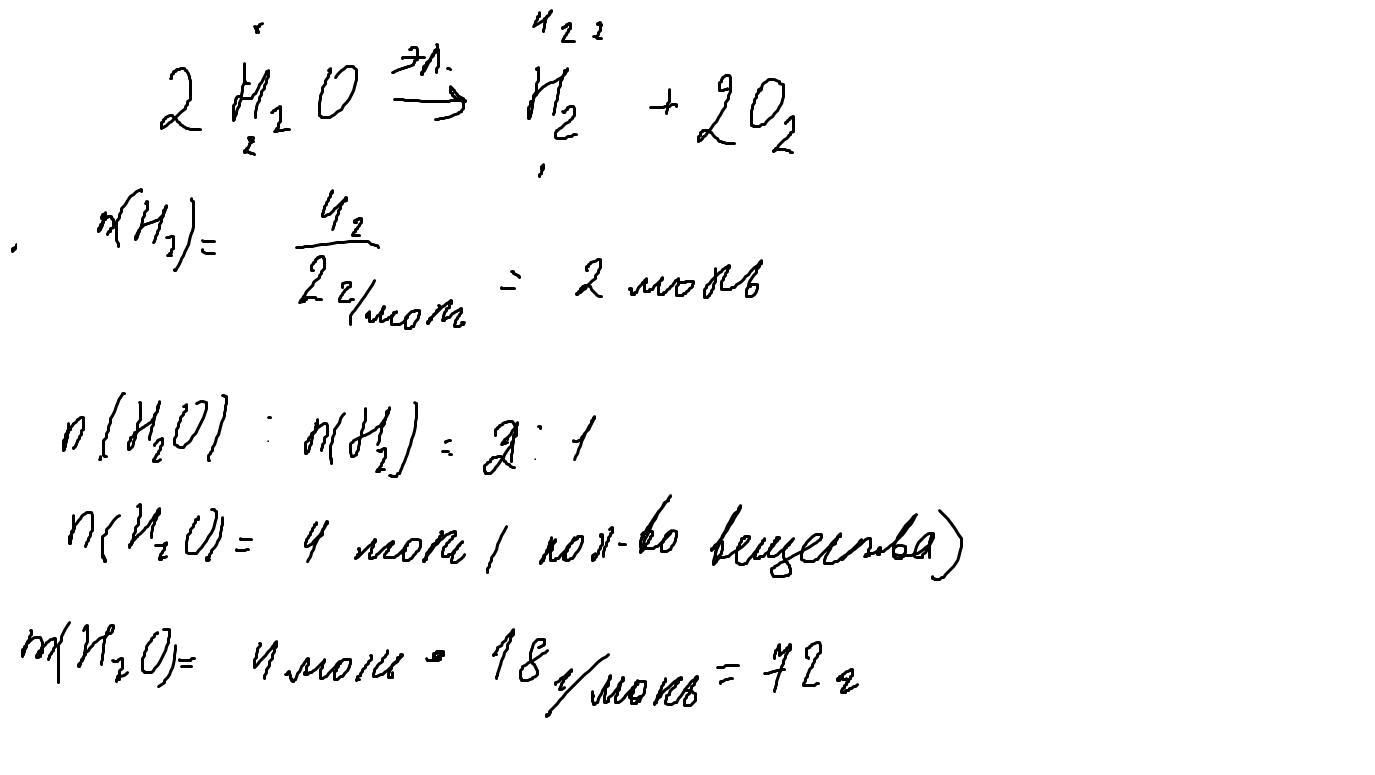 4 г 2
2 H₂O эл. → H₂ + 2O₂
2 1
n(H₂) = 4г / 2 г/моль = 2 моль
n(H₂O) : n(H₂) = 2 : 1
n(H₂O) = 4 моль ( кол-во вещества)
m(H₂O) = 4 моль · 18 г/моль = 72 г